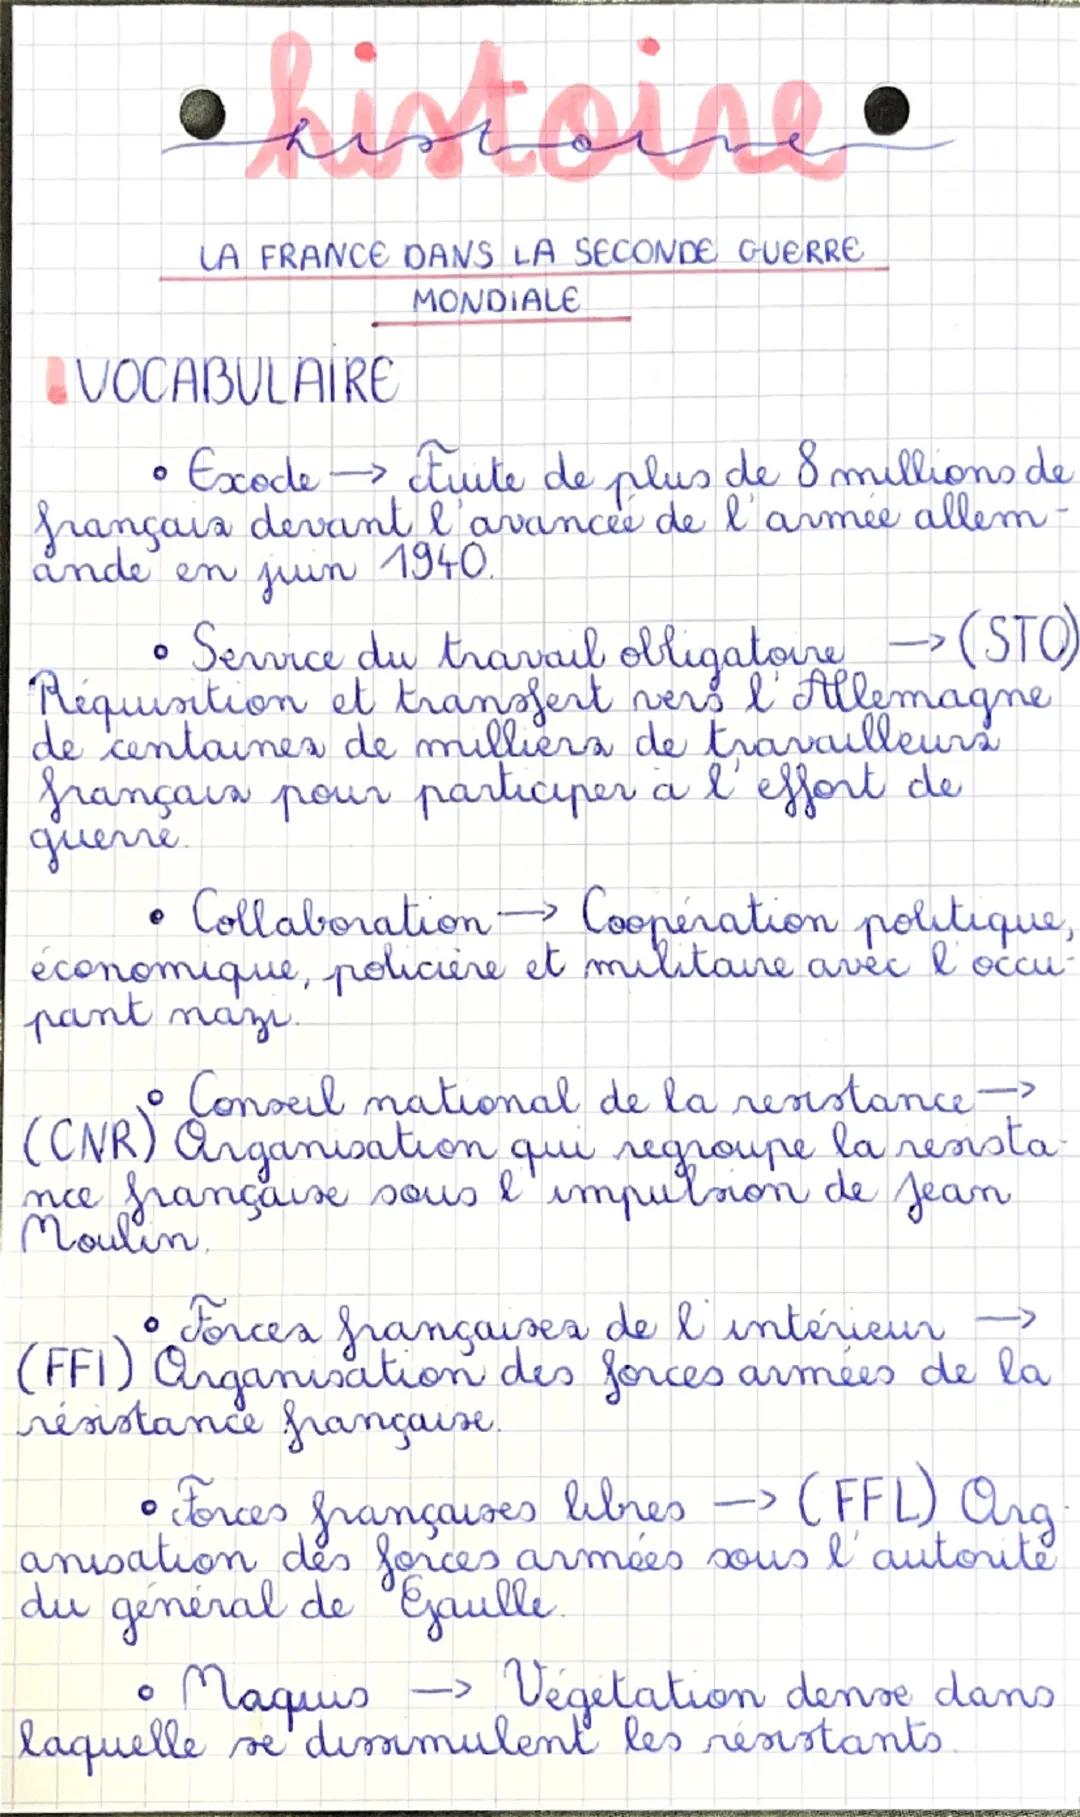 histoire
histoire
LA FRANCE DANS LA SECONDE GUERRE
MONDIALE
VOCABULAIRE
• Exode → Fuite de plus de 8 millions de
français devant l'avancée de l'armée allem-
ande en juin 1940.
• Service du travail obligatoire → (STO)
Réquisition et transfert vers l'Allemagne
de centaines de milliers de travailleurs
français pour participer à l'effort de
guerre.
• Collaboration → Coopération politique,
économique, policière et militaire avec l'occu-
pant nazi.
• Conseil national de la resistance →
(CNR) Organisation qui regroupe la resista-
nce française sous l'impulsion de Jean
Moulin.
• Forces françaises de l'intérieur →
(FFI) Organisation des forces armées de la
résistance française.
• Forces françaises libres → (FFL) Org-
anisation des forces armées sous l'autorité
du général de Gaulle.
• Maquis → Végétation dense dans
laquelle se dissimulent les résistants.